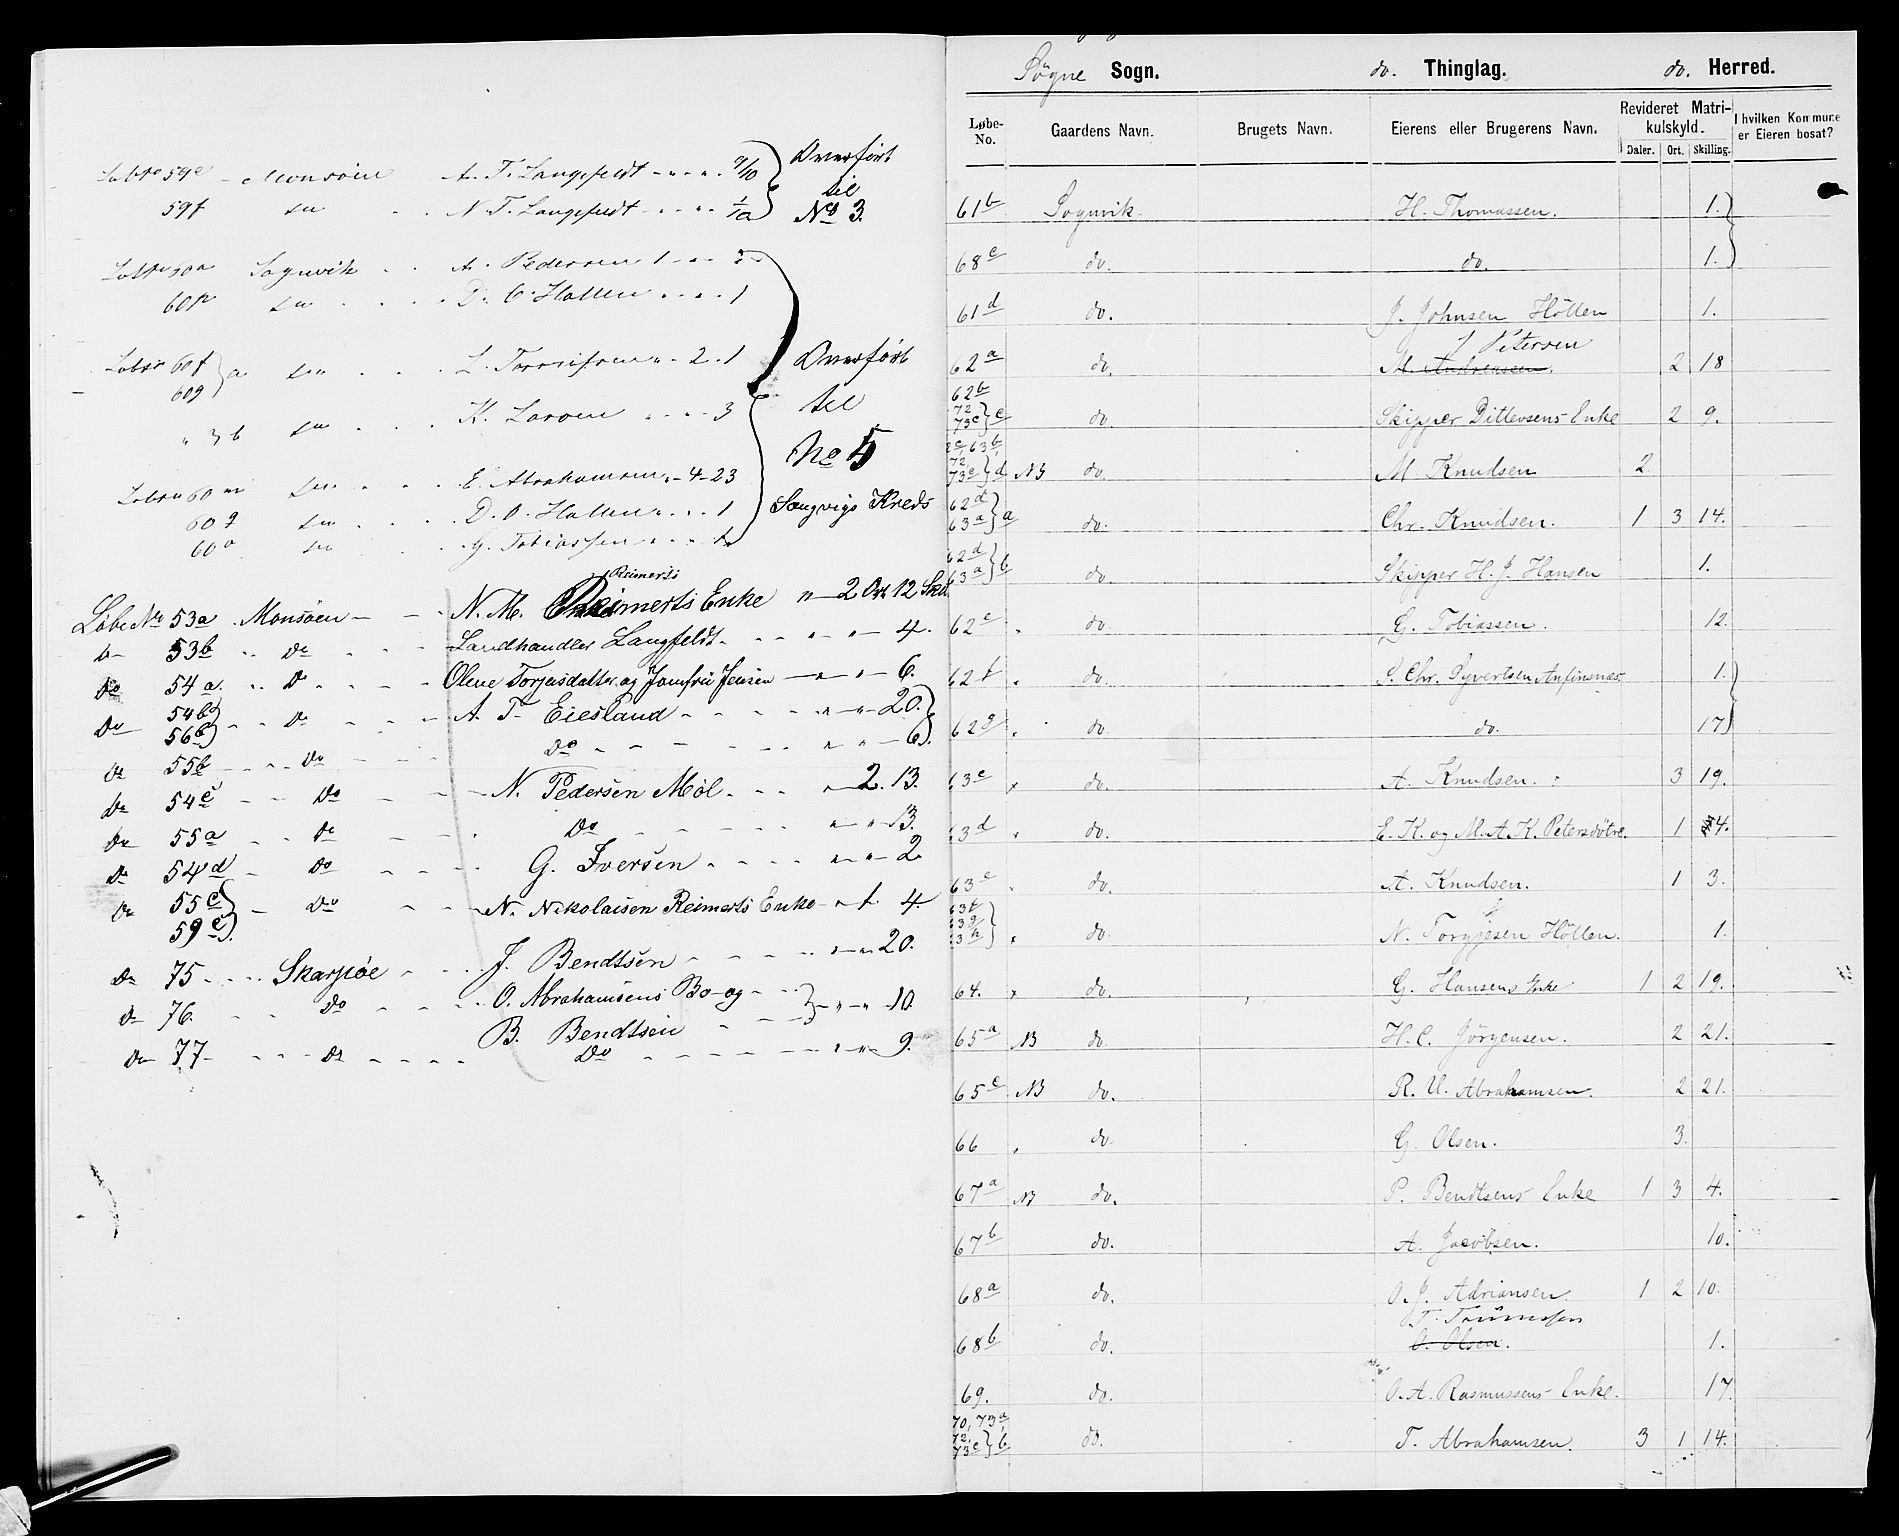 Løbe No 59e - Monsøen A. T. Langfeldt - " - " 9/10
59f do N. T. Langfeldt - " - "
Overført
til
No 3.
60a Sognvik A. Pedersen 1 - "
60p do D. O. Holten " - " 1
60f } a do " - 2 - 1
60g
" b do K. Larsen - 3
Overført
til
No 5
Sangvigs Kreds
60m do E. Abrahamsen " - 4 - 23
60q do D. O. Holten " 1
60o do G. Tobiassen
Løbe No 53a Monsøen - N. M. Reimerts Enke " - 2 Ort 12 Skil
Reimerts
53b " Do Landhandler Langfeldt - " " - 4.
Do 54a " D Olene Torjusdatter og Jomfru Jensen - " - 6.
Do 54b } 56b " Do A. T. Eiesland " - " - 20. }
Do 55b Do Do " " - 6 }.
Do 54c Do N. Pedersen Møl " - 2. 13.
Do 55a do Do " - " - 13.
Do 54d Do G. Iversen " - " - 2
Do 55c } 59c } Do N. Nikolaisen Reimerts Enke - " 1. 4.
Do 75 Skarpøe J. Bendtsen " - " 20.
Do 76. Do O. Abrahamsens Bo og } - " - " - 10.
B. Bendtsen
Do 77 - Do Do " - " - 9.
Søgne Sogn. do. Thinglag. do. Herred.
Løbe-No. Gaardens Navn. Brugets Navn. Eierens eller Brugerens Navn. Revideret Matrikulskyld. I hvilken Kommune er Eieren bosat?
Daler. Ort. Skilling.
61b Sognvik H. Thomassen. 1. }
68c do. do. 1. }
61d do. J. Johnsen Hölten 1.
J Petersen
62a do. M. Andreassen. 2 18
62b 72 73c } c do Skipper Ditlevsens Enke 2 9.
63b, 72, 73c } d NB do M Knudsen 2
62d 63a } a do. Chr. Knudsen. 1 3 14.
62d 63a } b do. Skipper H. J. Hansen 1.
62e do. G. Tobiassen. 12.
62f do. S. Chr. Syvertsen Anfinsnæs 1. }
62g do. do. 17 }
63c do. A. Knudsen. 3 19.
63d do. E. K. og M. A. K. Petersdötre. 1 4.
63e do. A. Knudsen. 1 3.
63f 63g 63h } do. N. Torgjesen Hölten. 1.
64. do. G. Hansens Enke 1 2 19.
65a NB do. H. C. Jörgensen. 2 21.
65c NB do. R. U. Abrahamsen. 2 21.
66 do. G. Olsen. 3.
67a NB do. P. Bendtsens Enke 1 3 4.
67b do. A. Jacobsen. 10.
68a do. O. J. Adriansen. 1 2 10.
68b do. O. Olsen. 1.
69. do. O. A. Rasmussens Enke. 17
70, 73a, 72, 73c } b do. T. Abrahamsen. 3 1 14.